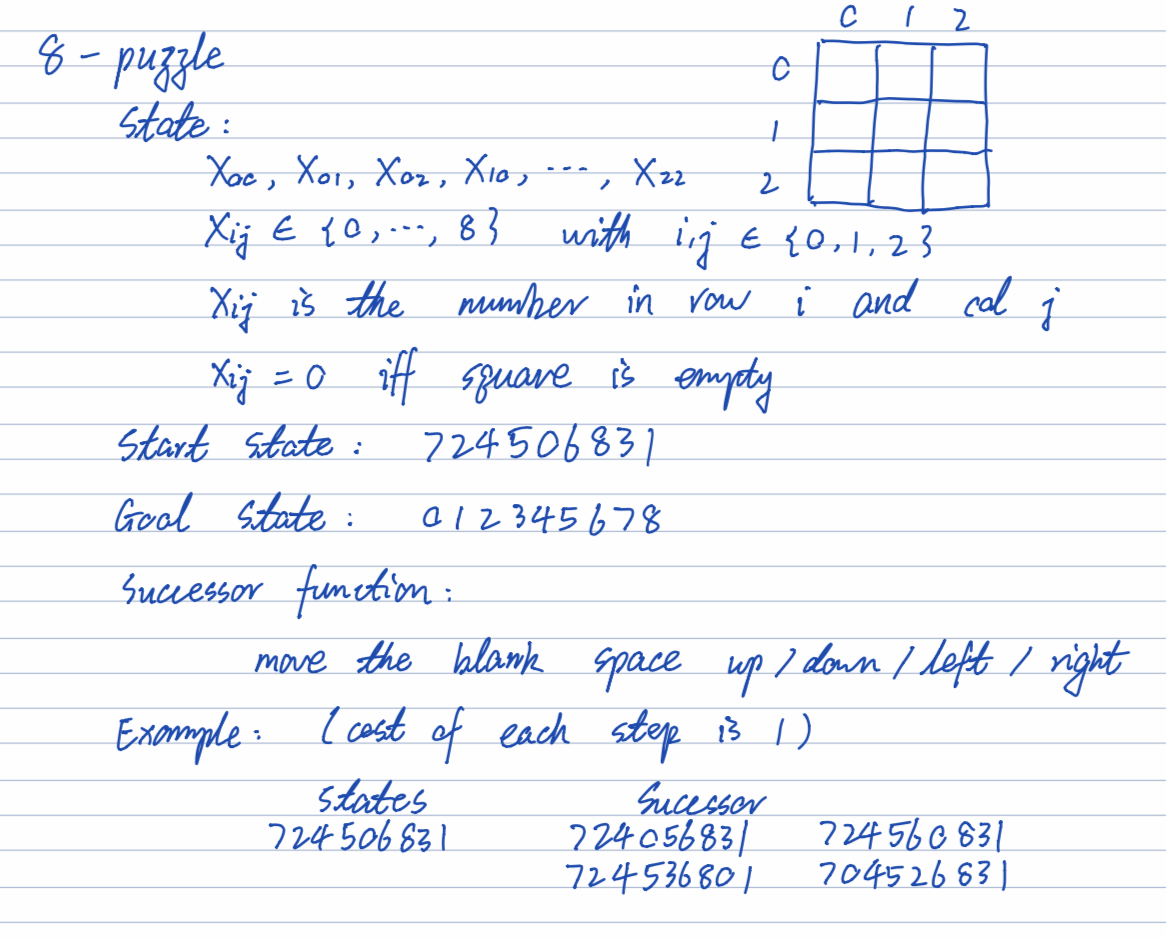 8 - puzzle
0 1 2
0
1
2
State :
X00, X01, X02, X10, ..., X22
Xij ∈ {0, ..., 8} with i,j ∈ {0, 1, 2}
Xij is the number in row i and col j
Xij = 0 iff square is empty
Start state : 724506831
Goal state : 012345678
Successor function :
move the blank space up / down / left / right
Example : (cost of each step is 1)
states Sucessor
724506831 724056831 724560831
724536801 704526831